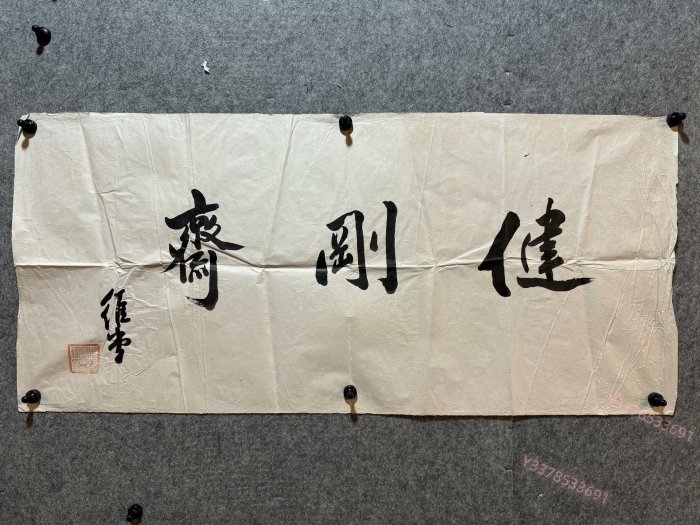 健剛齋
Y3378533691
Y3378533691